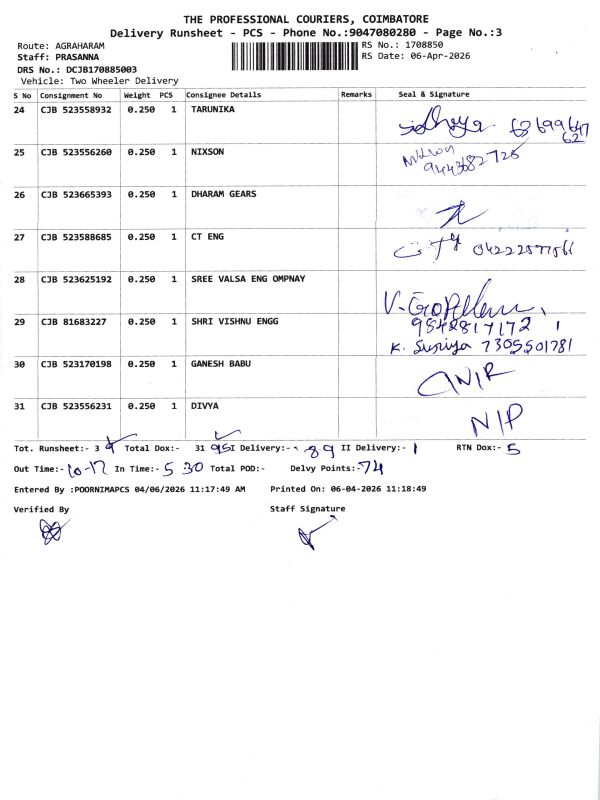 THE PROFESSIONAL COURIERS, COIMBATORE
Delivery Runsheet - PCS - Phone No.:9047080280 - Page No.:3
Route: AGRAHARAM RS No.: 1708850
Staff: PRASANNA RS Date: 06-Apr-2026
DRS No.: DCJB170885003
Vehicle: Two Wheeler Delivery
S No Consignment No Weight PCS Consignee Details Remarks Seal & Signature
24 CJB 523558932 0.250 1 TARUNIKA
25 CJB 523556260 0.250 1 NIXSON Nixson
26 CJB 523665393 0.250 1 DHARAM GEARS
27 CJB 523588685 0.250 1 CT ENG
28 CJB 523625192 0.250 1 SREE VALSA ENG OMPNAY
29 CJB 81683227 0.250 1 SHRI VISHNU ENGG 9842817172
K. Suriya 7305501781
30 CJB 523170198 0.250 1 GANESH BABU
31 CJB 523556231 0.250 1 DIVYA N/P
Tot. Runsheet:- 3 Total Dox:- 31 95 I Delivery:- 89 II Delivery:- 1 RTN Dox:- 5
Out Time:- 10-17 In Time:- 5 30 Total POD:- Delvy Points:- 74
Entered By :POORNIMAPCS 04/06/2026 11:17:49 AM Printed On: 06-04-2026 11:18:49
Verified By Staff Signature